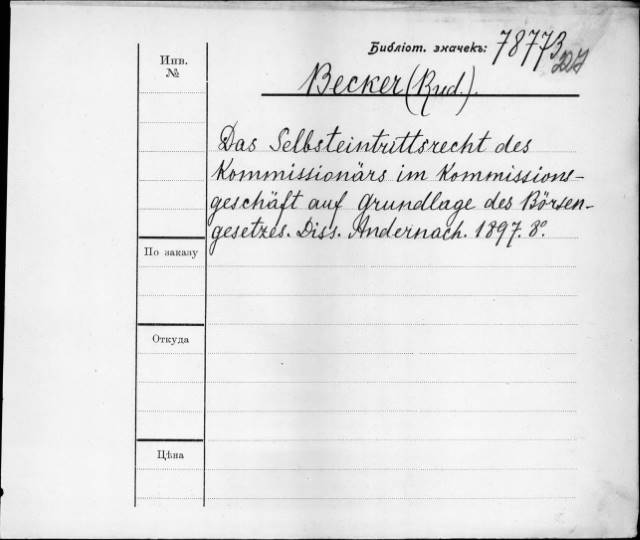 Библіот. значекъ: 78773
Инв.
№
Becker (Rud.).
Das Selbsteintrittsrecht des
Kommissionärs im Kommissions-
geschäft auf Grundlage des Börsen-
gesetzes. Diss. Andernach. 1897. 8º.
По заказу
Откуда
Цѣна